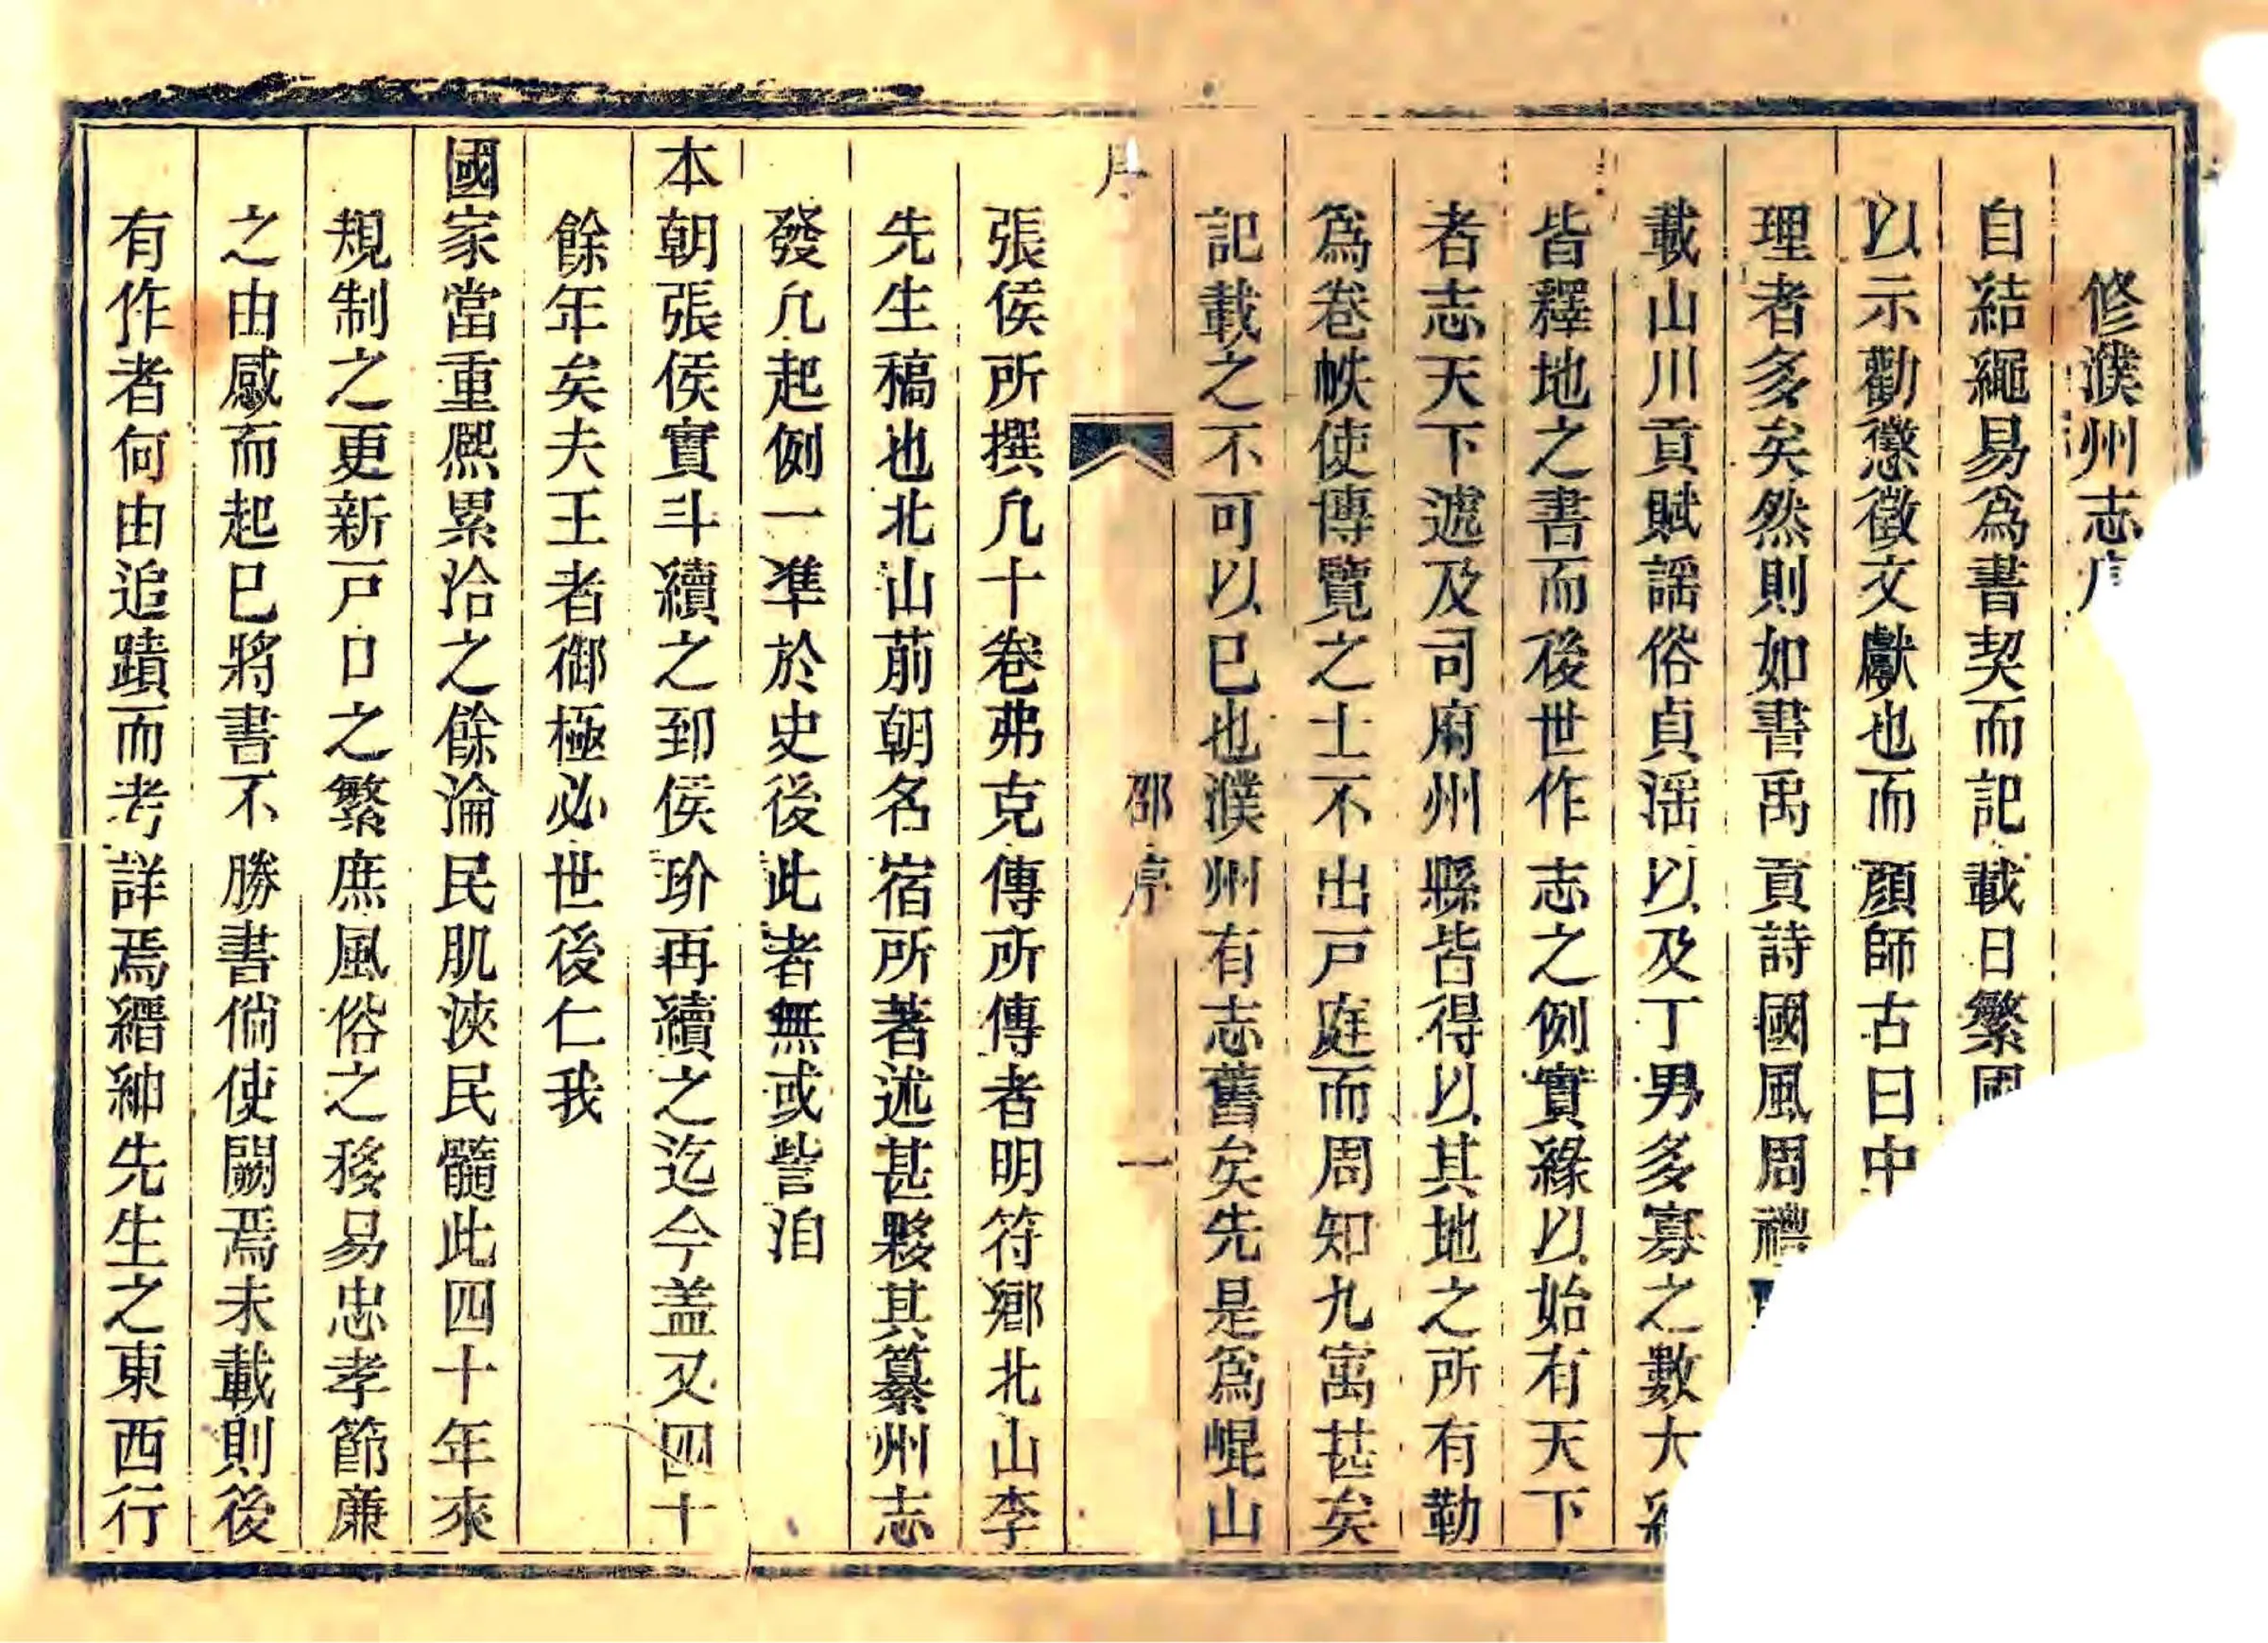 修濮州志序
自結繩易爲書契而記載日繁國
以示勸懲徵文獻也而顏師古曰中
理者多矣然則如書禹貢詩國風周禮
載山川貢賦謡俗貞淫以及丁男多寡之數大
皆釋地之書而後世作志之例實緣以始有天下
者志天下遞及司府州縣皆得以其地之所有勒
爲卷帙使博覽之士不出戸庭而周知九寓甚矣
記載之不可以已也濮州有志舊矣先是爲崐山
序
邵序
一
張侯所撰凢十卷弗克傳所傳者明符鄉北山李
先生稿也北山前朝名宿所著述甚夥其纂州志
發凢起例一準於史後此者無或訾洎
本朝張侯實斗續之到侯玠再續之迄今盖又四十
餘年矣夫王者御極必世後仁我
國家當重熈累洽之餘淪民肌浹民髓此四十年來
規制之更新戸口之繁庶風俗之移易忠孝節廉
之由感而起已將書不勝書倘使闕焉未載則後
有作者何由追蹟而考詳焉縉紳先生之東西行